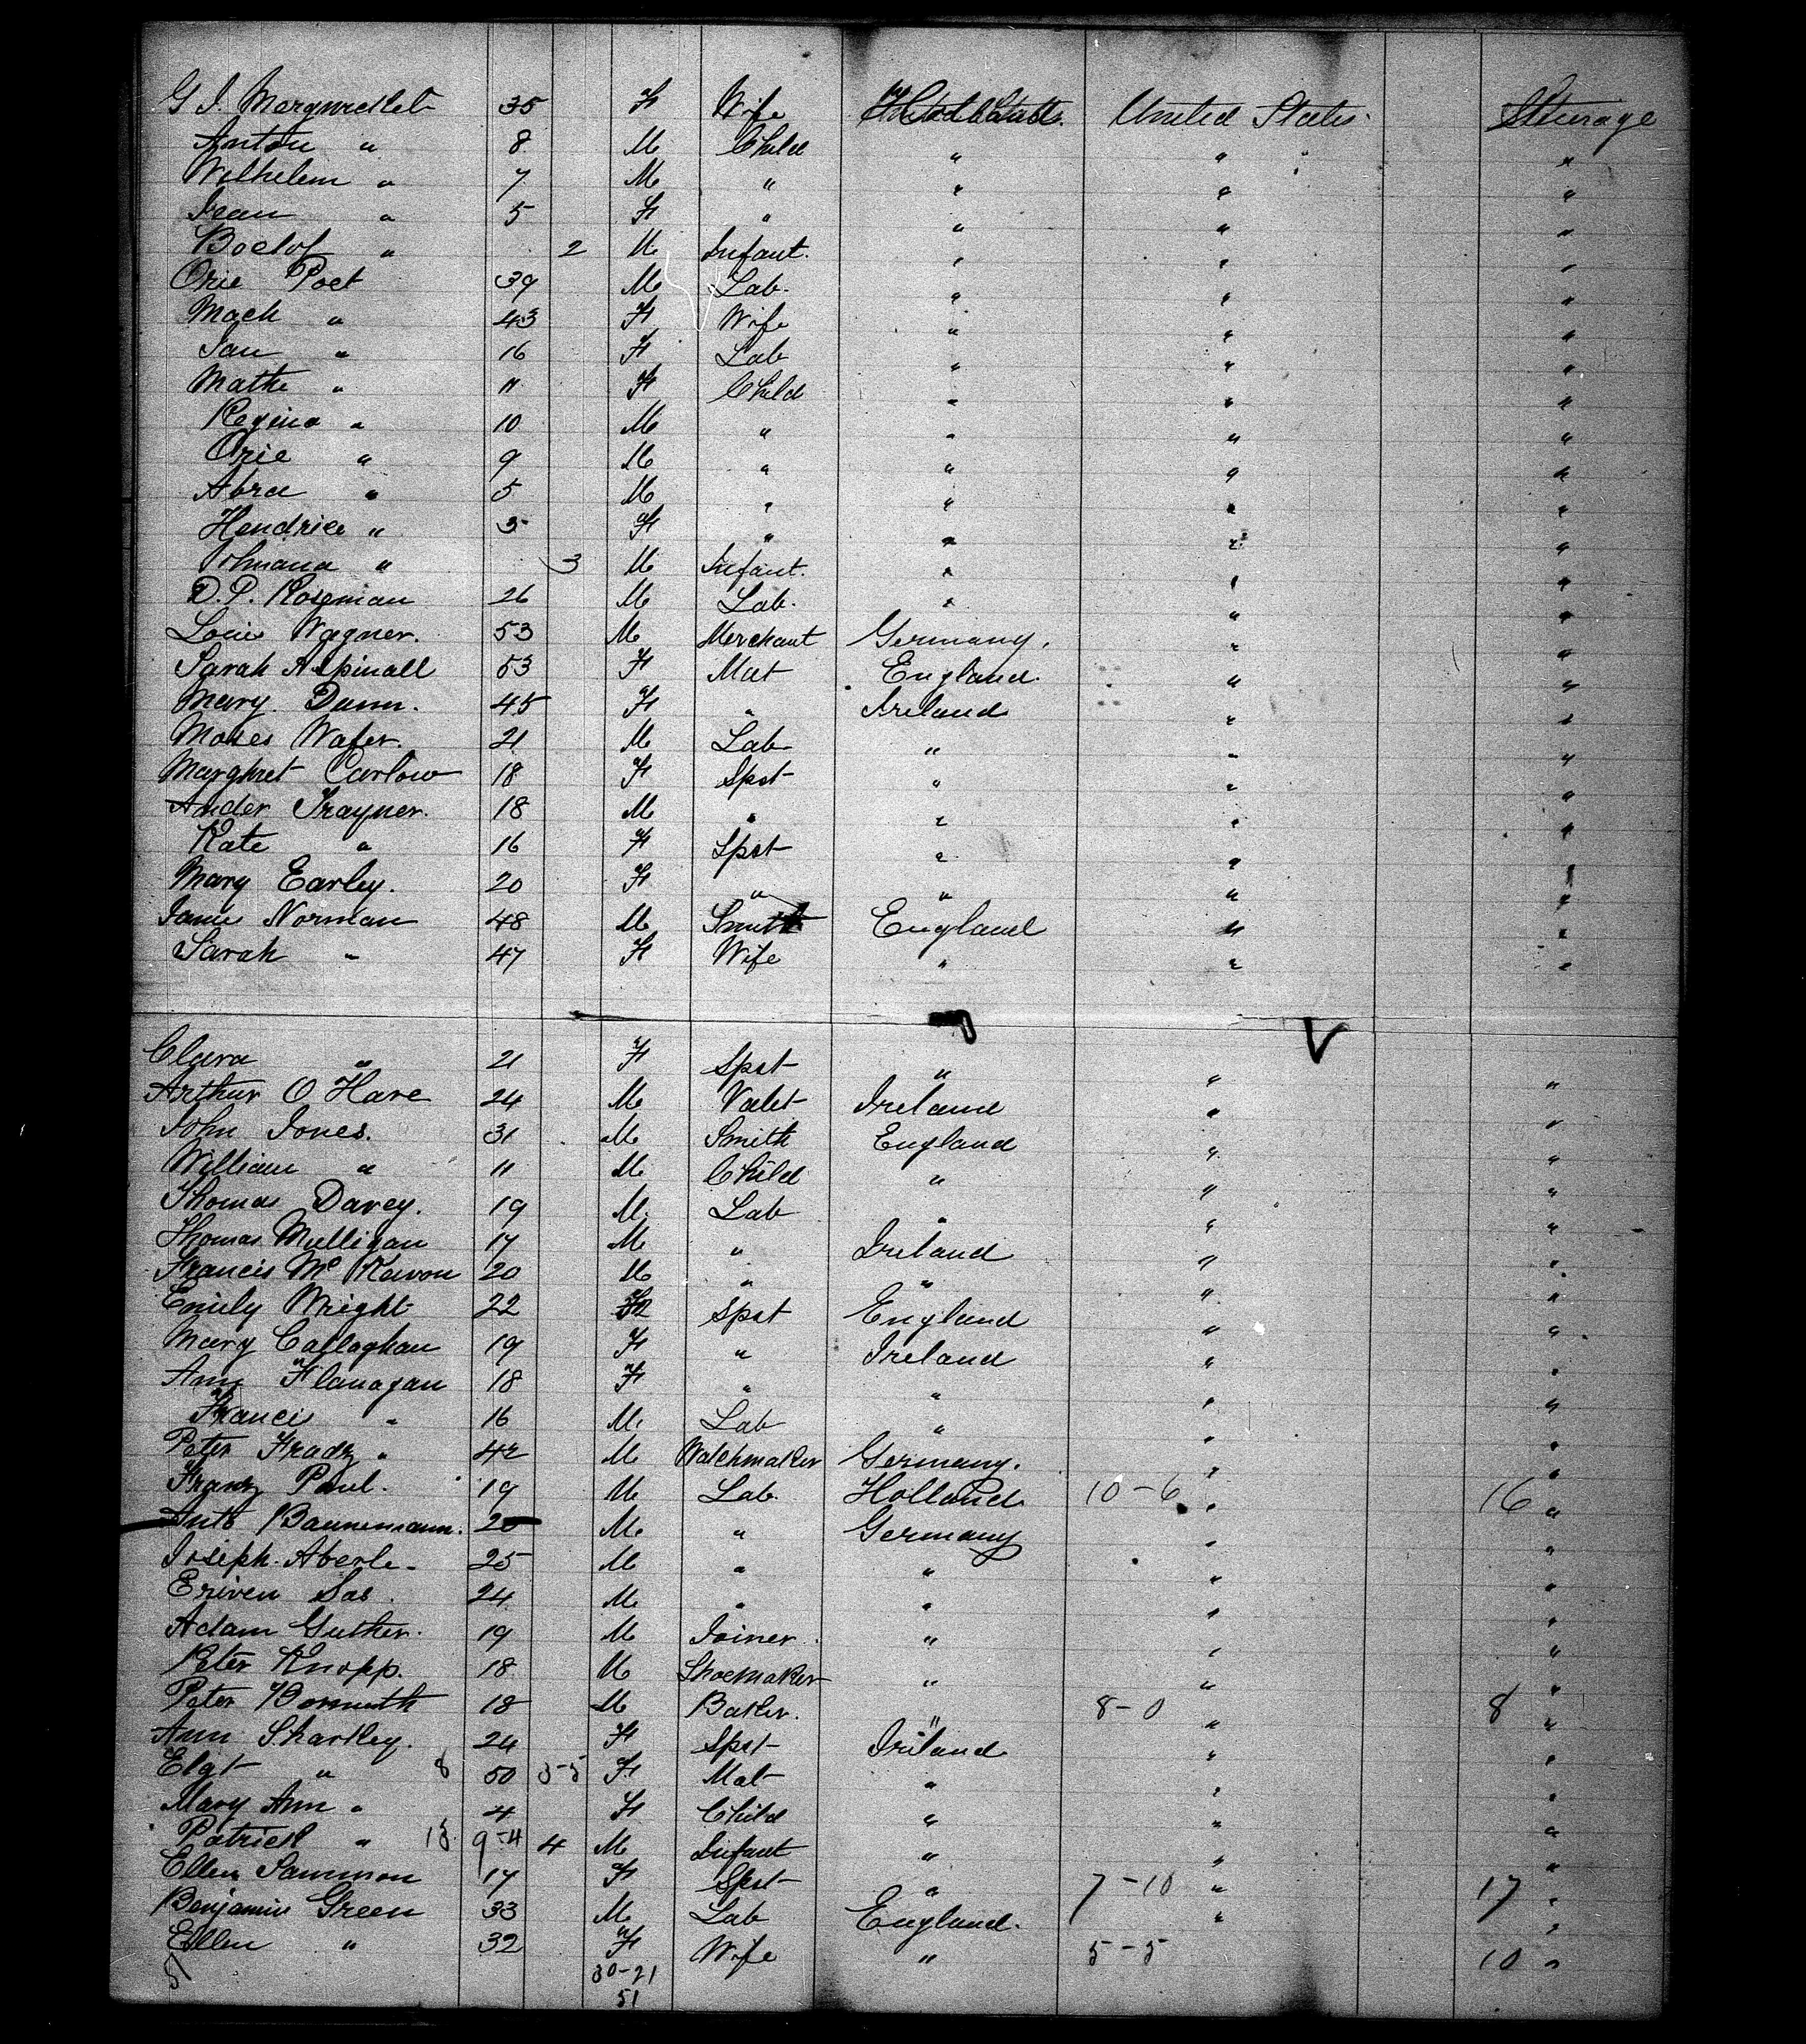 G J. 35 F Wife United States. Steerage
Anton " 8 M Child " " "
Wilhelem " 7 M " " " "
Jean " 5 F " " " "
Boelof " 2 M Infant. " " "
Orie Poet 39 M Lab. " " "
Mach " 43 F Wife " " "
Jan " 16 F Lab " " "
Mathe " 11 F Child " " "
Regina " 10 M " " " "
Orie " 9 M " " " "
Abra " 5 M " " " "
Hendrice " 3 F " " " "
" 3 M Infant. " " "
D. P. Roseman 26 M Lab. " " "
Louis Wagner. 53 M Merchant Germany. " "
Sarah Aspinall 53 F Mat England. " "
Mary Dunn. 45 F " Ireland " "
Moses Wafer. 21 M Lab " " "
Marghret Carlow 18 F Spst " " "
Ander Trayner. 18 M " " " "
Kate " 16 F Spst " " "
Mary Earley. 20 F " " " "
James Norman 48 M Smith England " "
Sarah " 47 F Wife " " "
Clara " 21 F Spst " " "
Arthur O Hare 24 M Valet Ireland " "
John Jones. 31 M Smith England " "
William " 11 M Child " " "
Thomas Davey. 19 M Lab " " "
Thomas Mulligan 17 M " Ireland " "
Francis Mc Kevon 20 M " " " "
Emily Wright 22 F Spst England " "
Mary Callaghan 19 F " Ireland " "
Ann Flanagan 18 F " " " "
Francis " 16 M Lab " " "
Peter Fradz " 42 M Watchmaker Germany. " "
Franz Paul. 19 M Lab. Holland 10-6 " 16 "
Anto Bannemann. 20 M " Germany " "
Joseph Aberle. 25 M " " " "
Eriven Sas. 24 M " " " "
Adam Guther. 19 M Joiner. " " "
Peter Knopp. 18 M Shoemaker " " "
Peter 18 M Baker. " 8-0 " 8 "
Ann Sharkley. 24 F Spst Ireland " "
Elgt " 8 50 5-5 F Mat " " "
Mary Ann " 4 F Child " " "
Patrick " 13. 9-4 4 M Infant " " "
Ellen Sammon 17 F Spst " 7-10 " 17 "
Benjamin Green 33 M Lab England. " "
Ellen " 32 F Wife " 5-5 10 "
51 30-21
51